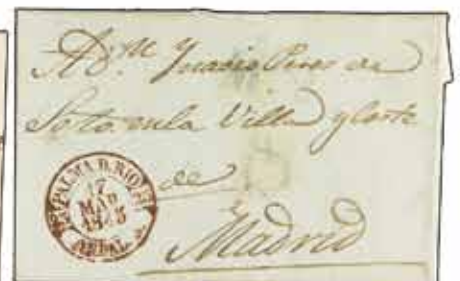 A D.ⁿ Ignacio Perez de
Soto en la Villa y Corte
de
Madrid
PALMA D. RIO
17
MAR
184
ANDAL. B.